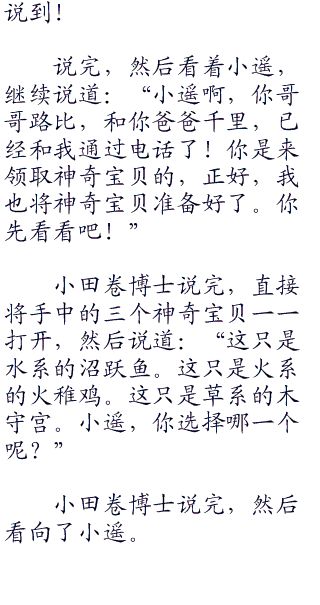 说到！
说完，然后看着小遥，
继续说道：“小遥啊，你哥
哥路比，和你爸爸千里，已
经和我通过电话了！你是来
领取神奇宝贝的，正好，我
也将神奇宝贝准备好了。你
先看看吧！”
小田卷博士说完，直接
将手中的三个神奇宝贝一一
打开，然后说道：“这只是
水系的沼跃鱼。这只是火系
的火稚鸡。这只是草系的木
守宫。小遥，你选择哪一个
呢？”
小田卷博士说完，然后
看向了小遥。